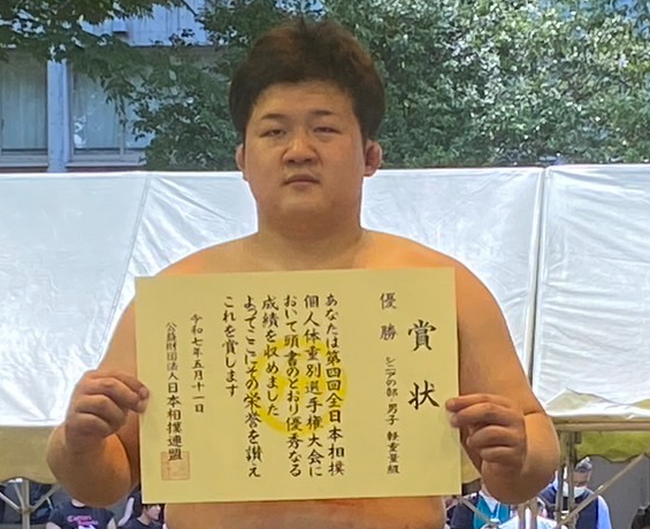 賞状
優勝 シニアの部・男子 軽重量級
あなたは第四回全日本相撲
個人体重別選手権大会に
おいて頭書のとおり優秀なる
成績を収めました
よってここにその栄誉を讃え
これを賞します
令和七年五月十一日
公益財団法人日本相撲連盟